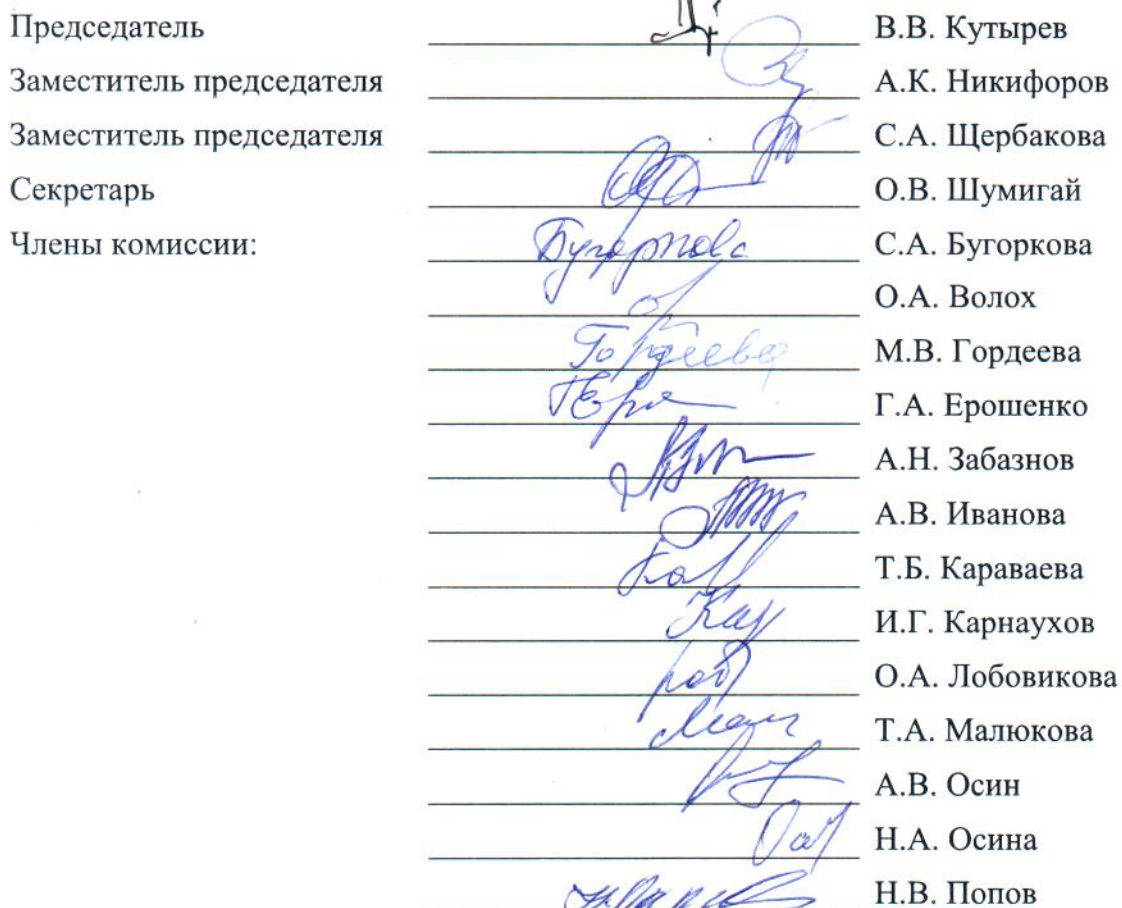 Председатель В.В. Кутырев
Заместитель председателя А.К. Никифоров
Заместитель председателя С.А. Щербакова
Секретарь О.В. Шумигай
Члены комиссии: Бугоркова С.А. Бугоркова
О.А. Волох
Гордеева М.В. Гордеева
Г.А. Ерошенко
А.Н. Забазнов
А.В. Иванова
Т.Б. Караваева
И.Г. Карнаухов
О.А. Лобовикова
Т.А. Малюкова
А.В. Осин
Н.А. Осина
Н.В. Попов